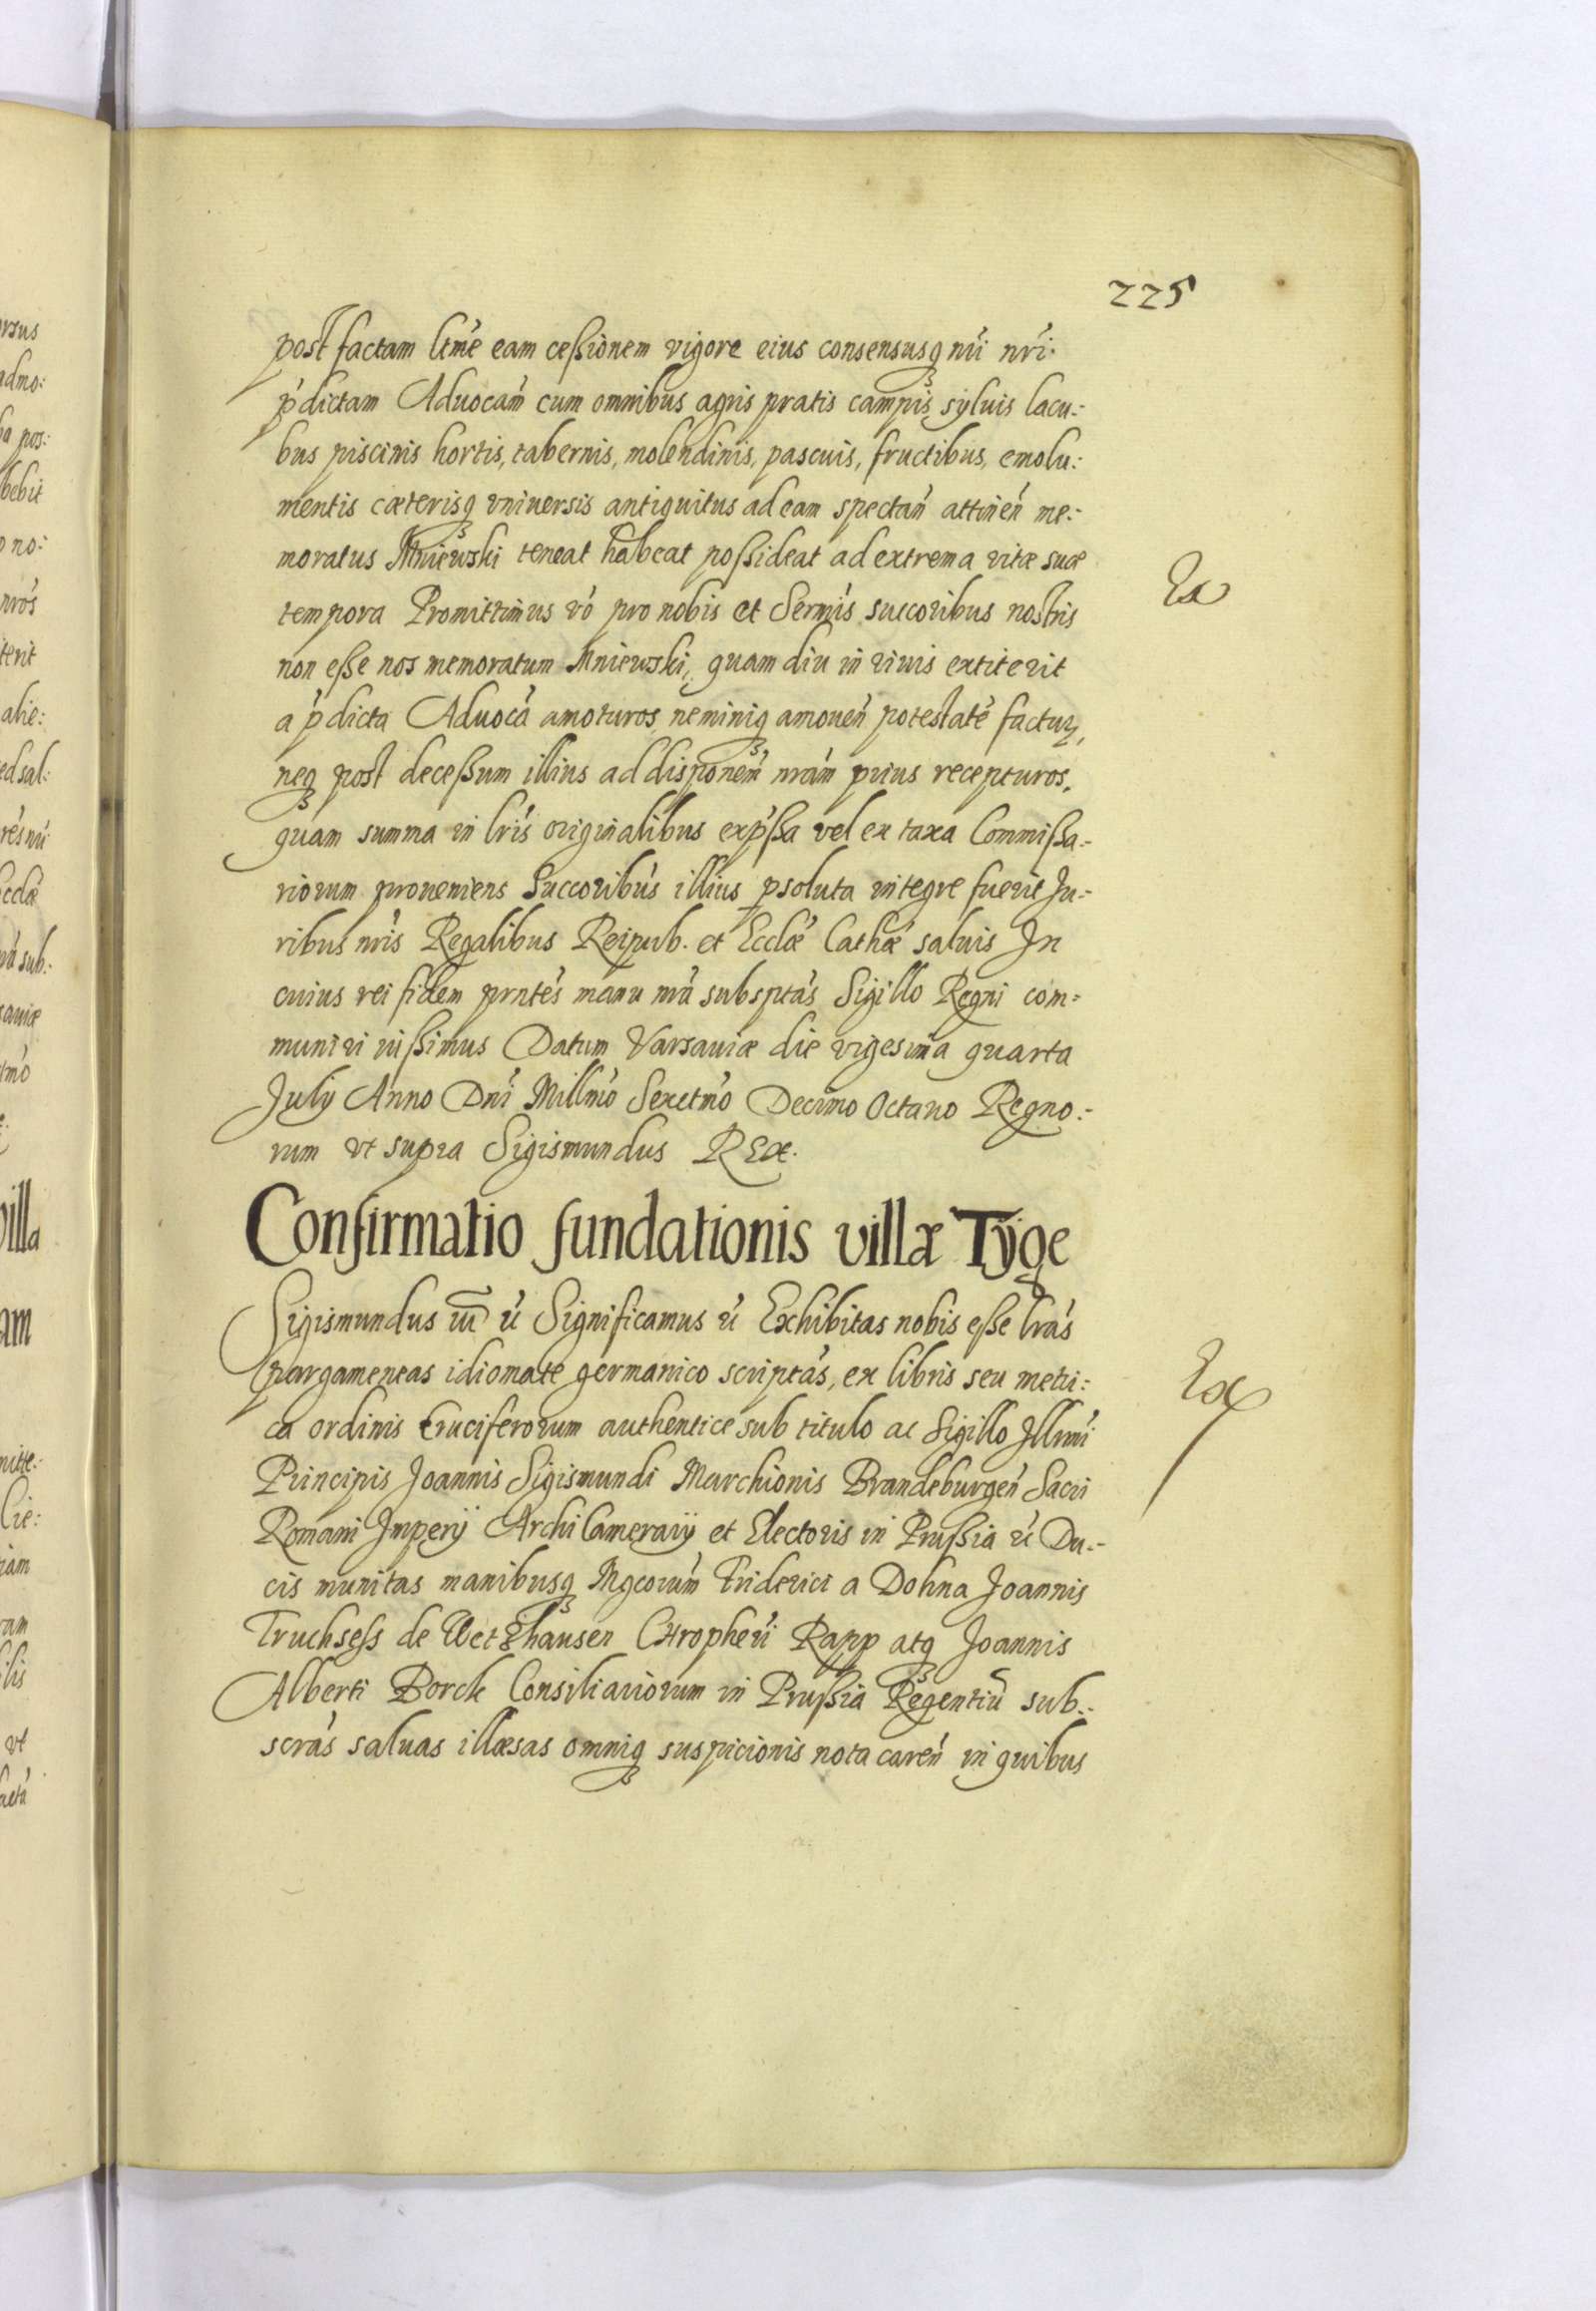 225
post factam ltme eam cessionem vigore eius consensusq nri nri.
pdictam Aduocam cum omnibus agris pratis campis syluis lacu:
bus piscinis hortis, tabernis, molendinis, pascuis, fructibus, emolu:
mentis cæterisq vniuersis antiquitus ad eam spectan attinen me:
moratus Mniewski teneat habeat possideat ad extrema vitæ suæ
tempora Promittimus vo pro nobis et Sermis succoribus nostris
non esse nos memoratum Mniewski, quam diu in viuis extiterit
a pdicta Aduoca amoturos neminiq amouen potestate factur,
neq post decessum illius ad disponem nram prius recepturos,
quam summa in lris originalibus expssa vel ex taxa Commissa-
riorum proueniens Succoribus illius psoluta integre fuerit Ju-
ribus nris Regalibus Reipub. et Ecclæ Cathæ saluis In
cuius rei fidem prntes manu nra subsptas Sigillo Regni com-
muniri iussimus Datum Varsauiæ die vigesima quarta
July Anno Dni Millmo Sexctmo Decimo Octauo Regno:
rum vt supra Sigismundus REX.
Confirmatio fundationis villæ Tÿge
Sigismundus III &c Significamus &c Exhibitas nobis esse lras
pargameneas idiomate germanico scriptas, ex libris seu metri:
ca ordinis Cruciferorum authentice sub titulo ac Sigillo Illrmi
Principis Joannis Sigismundi Marchionis Brandeburgen Sacri
Romani Imperÿ ArchiCamerarÿ et Electoris in Prussia &c Du-
cis munitas manibusq Mgcorum Friderici a Dohna Joannis
Truchsess de Wetzhausen Chropheri Rapp atq Joannis
Alberti Borck Consiliariorum in Prussia Regentiu sub:
scras saluas illæsas omniq suspicionis nota caren in quibus
Ex
Ex